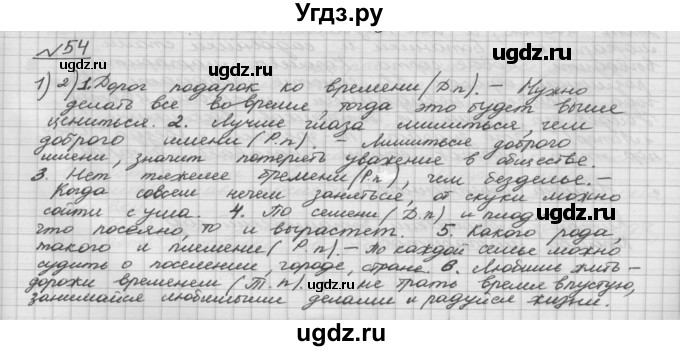 Угдз.ру
№54
1) 2) 1. Дорог подарок ко времени (Д.п). – Нужно
делать все вовремя, тогда это будет выше
цениться. 2. Лучше глаза лишиться, чем
доброго имени (Р.п). – Лишиться доброго
имени, значит потерять уважение в обществе.
3. Нет тяжелее бремени (Р.п), чем безделье. –
Когда совсем нечем заняться, от скуки можно
сойти с ума. 4. По семени (Д.п) и плод
что посеяно, то и вырастет. 5. Какого рода,
такого и племени (Р.п). – По каждой семье можно
судить о поселении, городе, стране. 6. Любишь жить -
дорожи временем (Т.п). не трать время впустую,
занимайся любимыми делами и радуйся жизни.
ugdz.ru
ugdz.ru
ugdz.ru
ugdz.ru
ugdz.ru
ugdz.ru
ugdz.ru
ugdz.ru
Угдз.ру